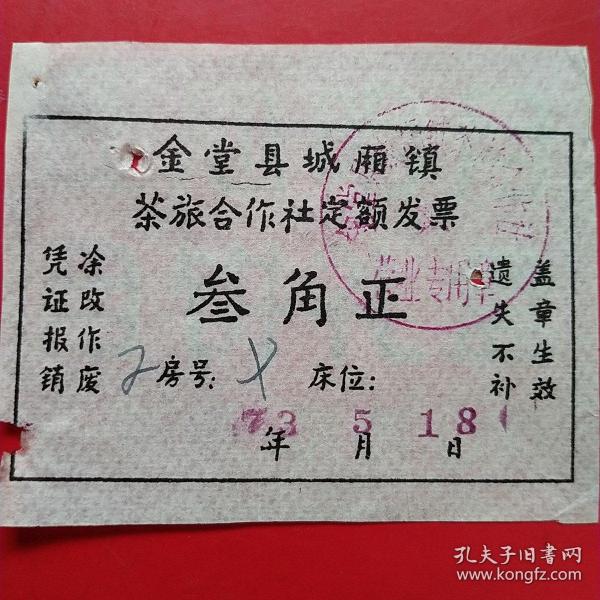 金堂县城厢镇
茶旅合作社定额发票
叁角正
凭证报销
涂改作废
遗失不补
盖章生效
2房号: X 床位:
73 5 18
年 月 日
业专用章
孔夫子旧书网
www.kongfz.com